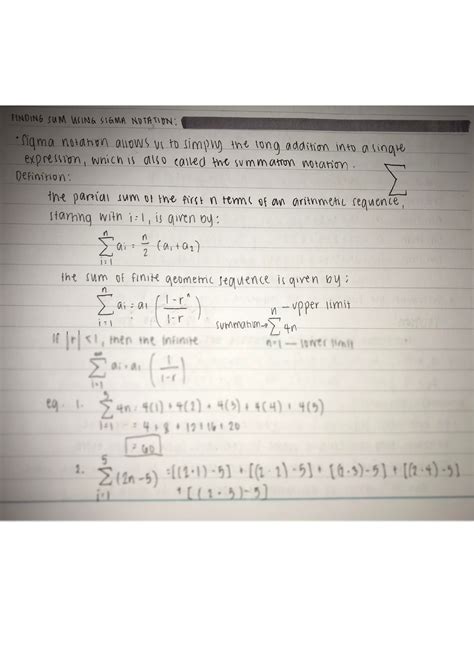 FINDING SUM USING SIGMA NOTATION:
• Sigma notation allows us to simply the long addition into a single
expression, which is also called the summation notation.
Σ
Definition:
the partial sum of the first n terms of an arithmetic sequence,
starting with i=1, is given by:
n
Σ ai = n/2 (a1+a2)
i=1
the sum of finite geometric sequence is given by:
n
Σ ai = a1 ( 1-r^n / 1-r )
i=1
n — upper limit
summation → Σ 4n
n=1 — lower limit
If |r| < 1, then the infinite
∞
Σ ai = a1 ( 1 / 1-r )
i=1
eg. 1. 5
Σ 4n = 4(1) + 4(2) + 4(3) + 4(4) + 4(5)
i=1 = 4 + 8 + 12 + 16 + 20
= 60
2. 5
Σ (2n-5) = [(2·1)-5] + [(2·2)-5] + [(2·3)-5] + [(2·4)-5]
i=1 + [(2·5)-5]